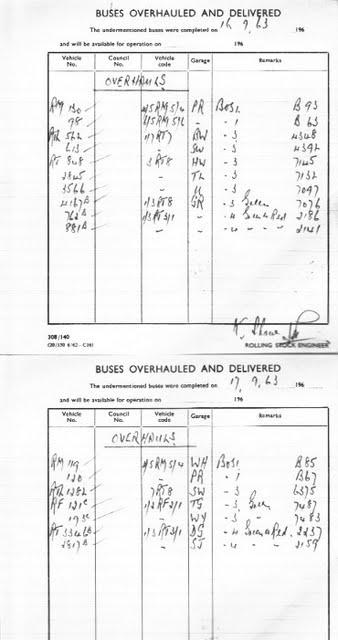 BUSES OVERHAULED AND DELIVERED
The undermentioned buses were completed on 16. 9. 63 196
and will be available for operation on 196
Vehicle No. Council No. Vehicle code Garage Remarks
OVERHAULS
RM 130 4/5RM5/4 PR BOS1 B93
98 4/5RM5/6 - 1 B63
562 1/7RT7 BW - 3 4348
613 - SW - 3 4392
RT 848 3RT8 HW - 3 7145
2845 - TL - 3 7132
3566 - - 3 7097
4167 1/3 RT8 GR - 3 Green 7076
762 1/3RT3/1 - 2186
881 - - 2141
ROLLING STOCK ENGINEER
308/140
BUSES OVERHAULED AND DELIVERED
The undermentioned buses were completed on 17. 9. 63 196
and will be available for operation on 196
Vehicle No. Council No. Vehicle code Garage Remarks
OVERHAULS
RM 119 4/5RM5/4 WH BOS1 B85
120 - PR - B67
1282 7RT8 SW - 3 6375
RF 121 1/2RF2/1 TG - 3 Green 7487
193 - WY - 3 - 7483
RT 3346 1/3RT3/1 DG 2237
2817 - SJ 2159